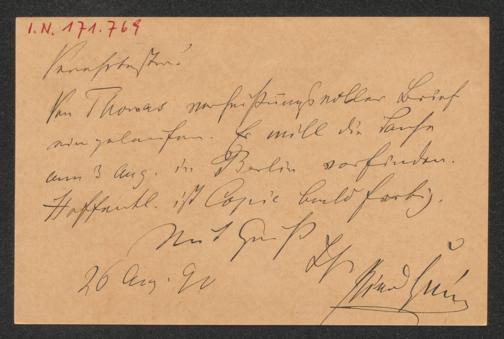 I.N. 171.769
Verehrtester!
Von Thomas verheißungsvoller Brief
eingelaufen. Er will die Sache
am 3 Aug. in Berlin vorfinden.
Hoffentl. ist Copie bald fertig.
Mit Gruß
26 Aug. 90